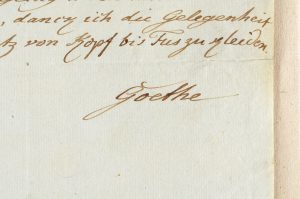 , dancy ich die Gelegenheit
von Kopf bis Fus zu gleiden.
Goethe